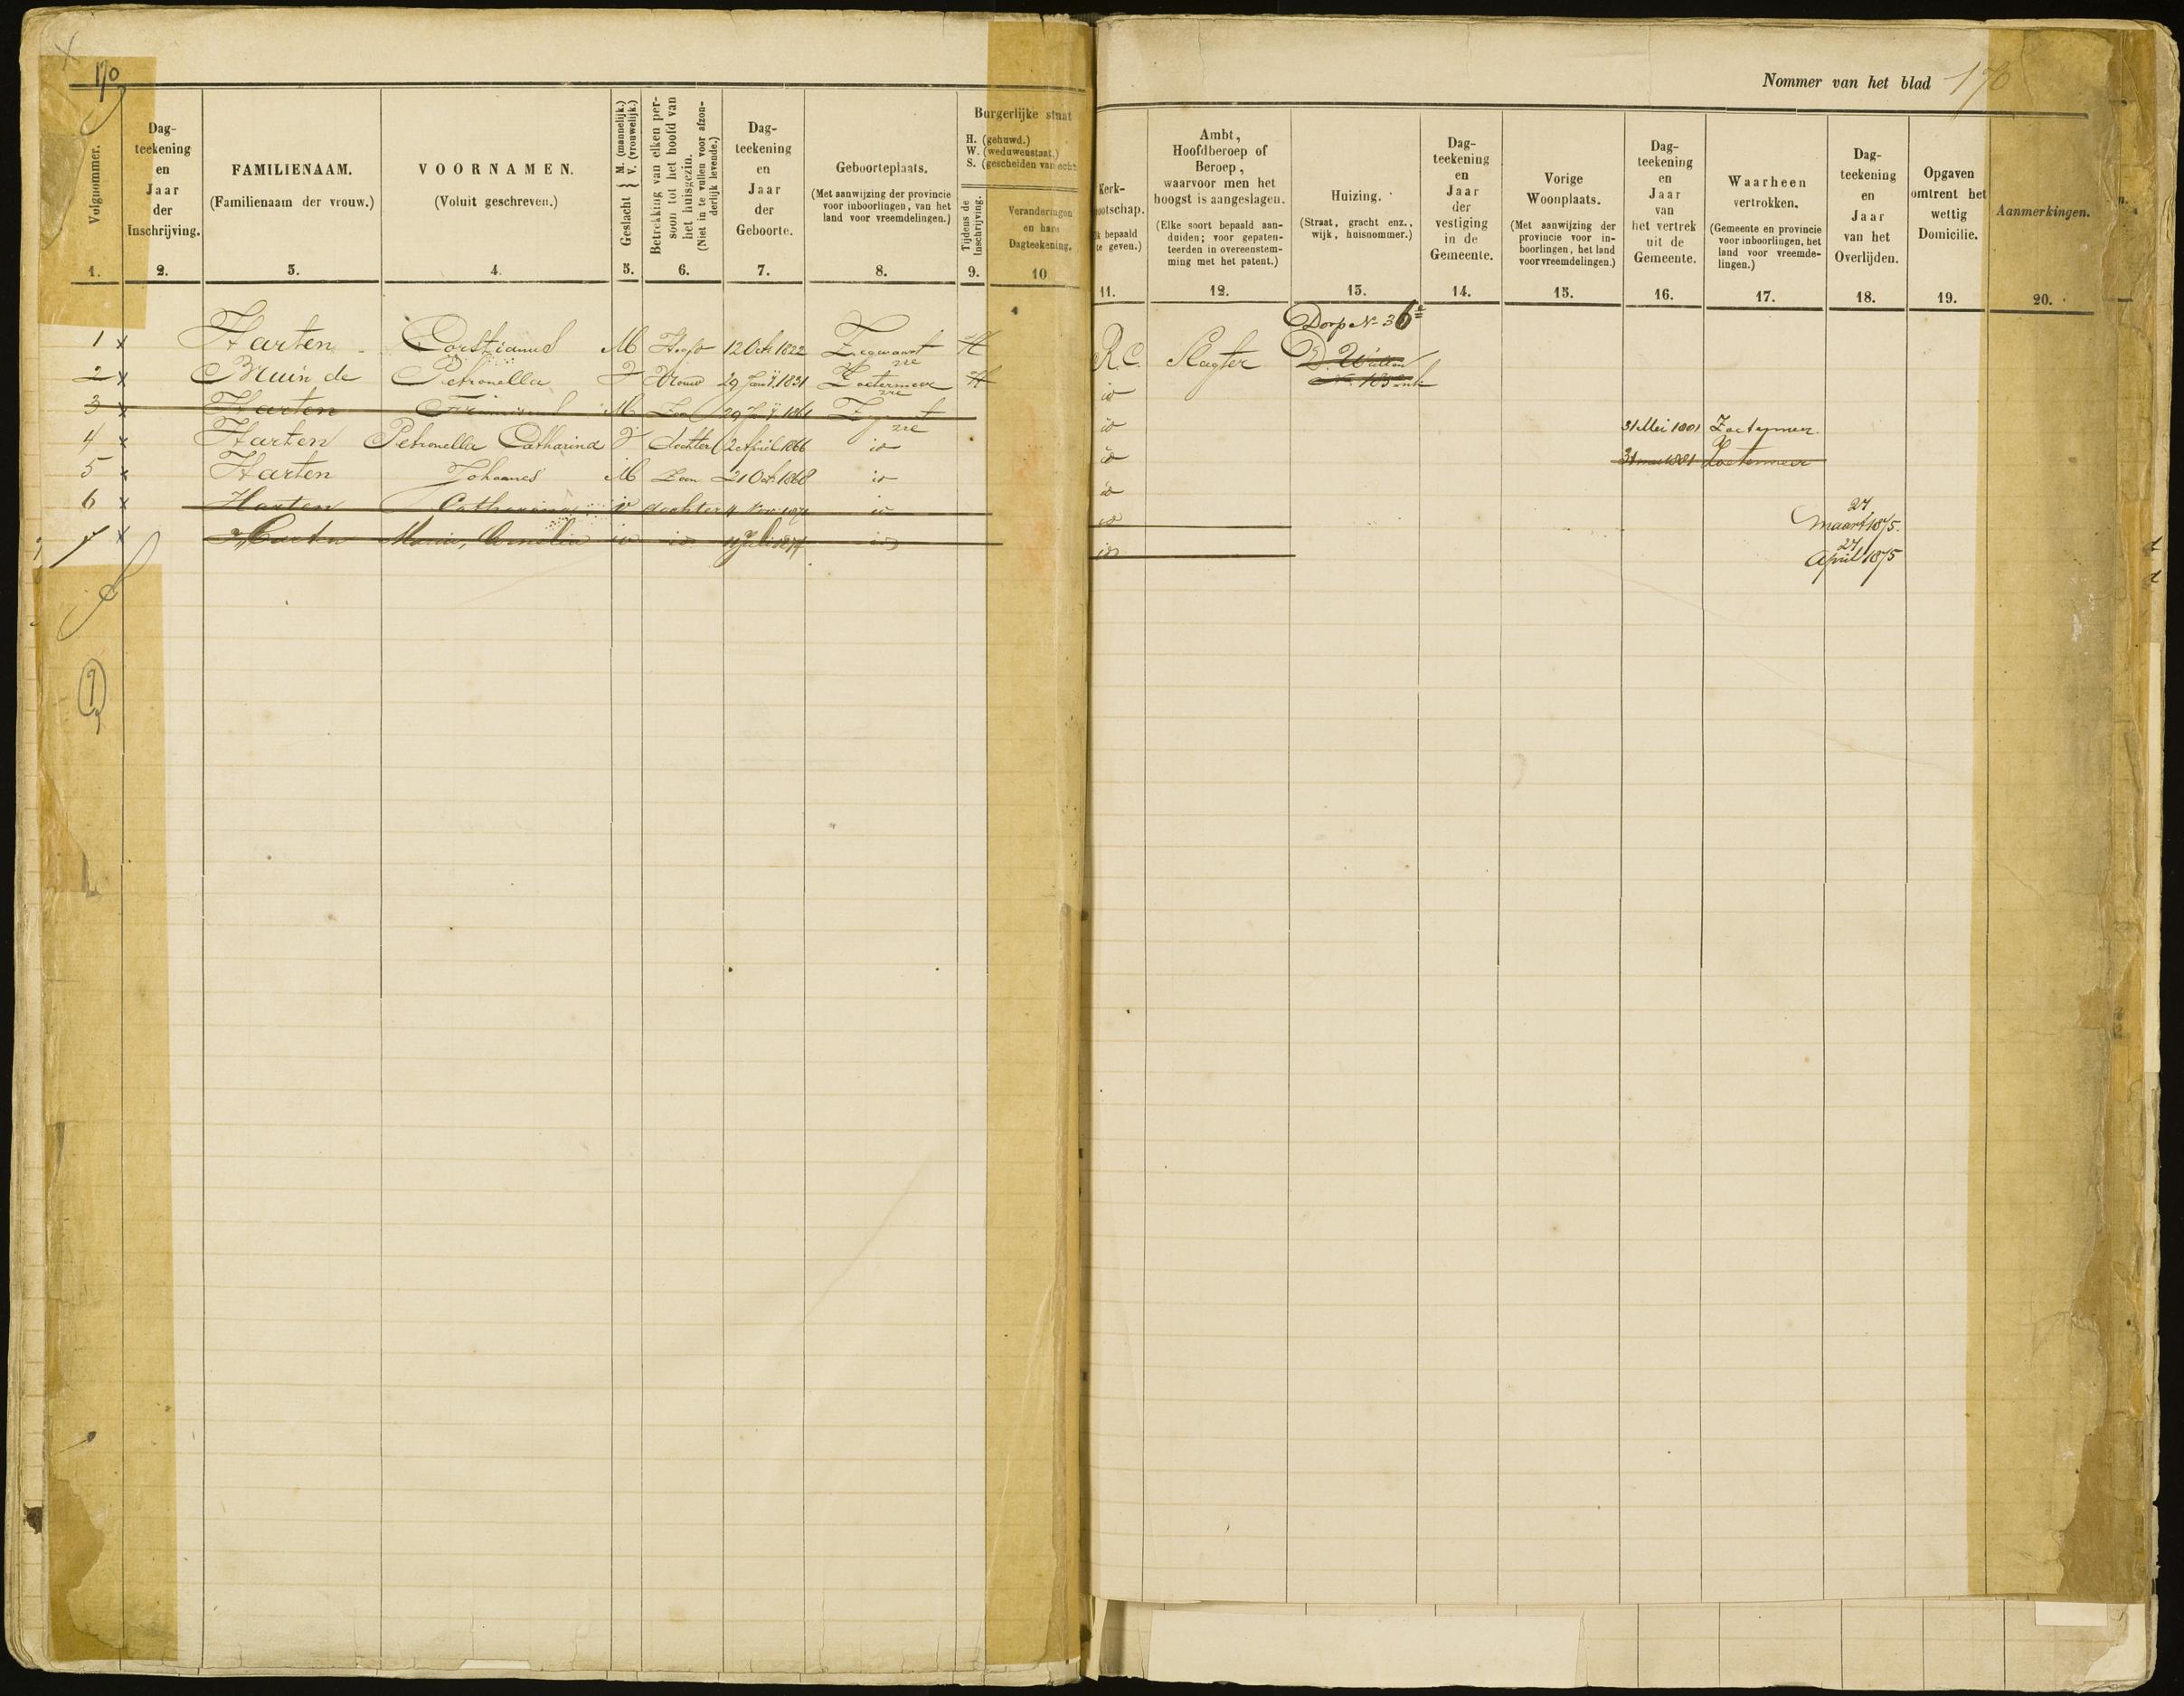 170
Nommer van het blad 170
Volgnommer.
1.
Dag-
teekening
en
Jaar
der
Inschrijving.
2.
FAMILIENAAM.
(Familienaam der vrouw.)
3.
VOORNAMEN.
(Voluit geschreven.)
4.
Geslacht } M. (mannelijk.)
V. (vrouwelijk.)
5.
Betrekking van elken per-
soon tot het hoofd van
het huisgezin.
(Niet in te vullen voor afzon-
derlijk levende.)
6.
Dag-
teekening
en
Jaar
der
Geboorte.
7.
Geboorteplaats.
(Met aanwijzing der provincie
voor inboorlingen, van het
land voor vreemdelingen.)
8.
Burgerlijke staat
H. (gehuwd.)
W. (weduwenstaat.)
S. (gescheiden van echt
Tijdens de
Inschrijving.
9.
Veranderingen
en hare
Dagteekening.
10
Kerk-
ootschap.
k bepaald
te geven.)
11.
Ambt,
Hoofdberoep of
Beroep,
waarvoor men het
hoogst is aangeslagen.
(Elke soort bepaald aan-
duiden; voor gepaten-
teerden in overeenstem-
ming met het patent.)
12.
Huizing.
(Straat, gracht enz.,
wijk, huisnommer.)
13.
Dag-
teekening
en
Jaar
der
vestiging
in de
Gemeente.
14.
Vorige
Woonplaats.
(Met aanwijzing der
provincie voor in-
boorlingen, het land
voor vreemdelingen.)
15.
Dag-
teekening
en
Jaar
van
het vertrek
uit de
Gemeente.
16.
Waarheen
vertrokken.
(Gemeente en provincie
voor inboorlingen, het
land voor vreemde-
lingen.)
17.
Dag-
teekening
en
Jaar
van het
Overlijden.
18.
Opgaven
omtrent het
wettig
Domicilie.
19.
Aanmerkingen.
20.
1 x Harten Corstianus M Hoofd 12 Oct. 1822 Zegwaart H R.C. Slagter Dorp No 36a
2 x Bruin de Petronella V Vrouw 29 Jan. 1831 Zoetermeer H id
3 x Harten M Zoon 29 1861 id 31 Mei 1881 Zoetermeer
4 x Harten Petronella Catharina V dochter 2 April 1866 id id 31 mei 1881 Zoetermeer
5 x Harten Johannes M Zoon 21 Oct. 1868 id id
6 x Harten Catharina v dochter 4 Nov. id id 27 Maart 1875.
7 x Harten Maria, v id 11 Juli 1874 id id 27 April 1875